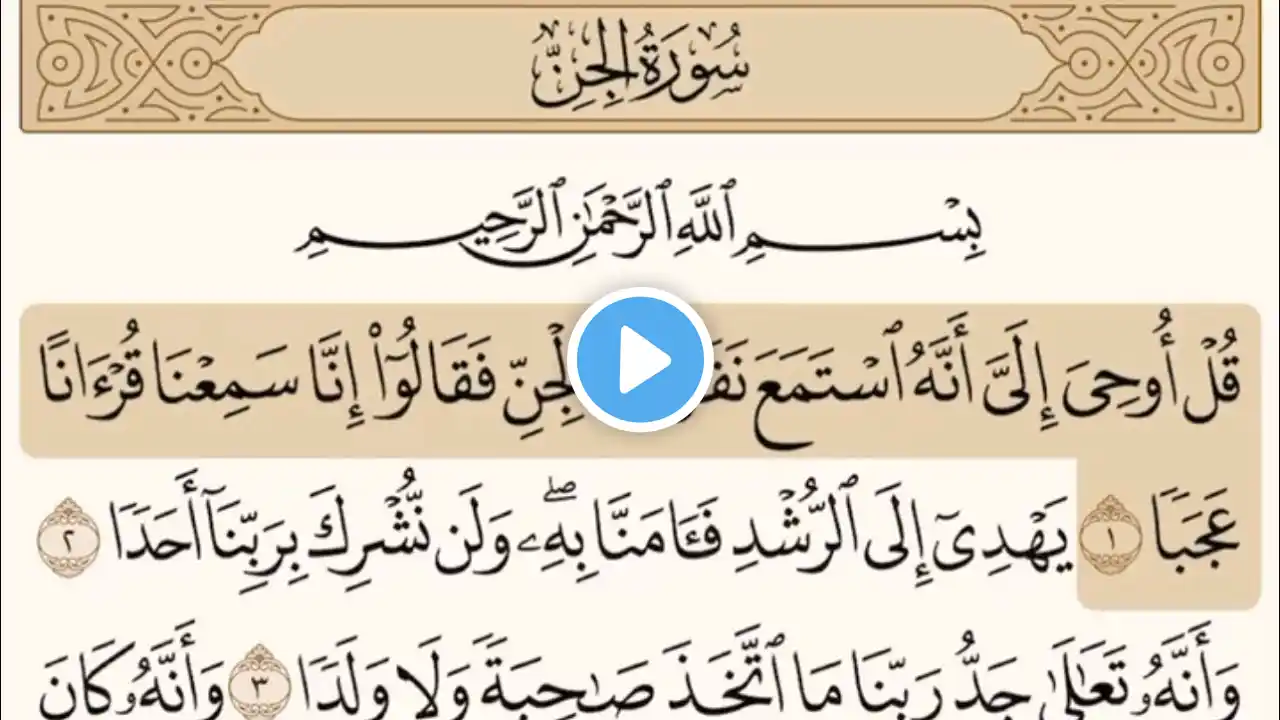 سُورَةُ الجِنِّ
بِسْمِ ٱللَّهِ ٱلرَّحْمَٰنِ ٱلرَّحِيمِ
قُلْ أُوحِىَ إِلَىَّ أَنَّهُ ٱسْتَمَعَ ٱلْجِنِّ فَقَالُوٓا۟ إِنَّا سَمِعْنَا قُرْءَانًا
عَجَبًا ١ يَهْدِىٓ إِلَى ٱلرُّشْدِ فَـَٔامَنَّا بِهِۦ ۖ وَلَن نُّشْرِكَ بِرَبِّنَآ أَحَدًا ٢
وَأَنَّهُۥ تَعَٰلَىٰ جَدُّ رَبِّنَا مَا ٱتَّخَذَ صَٰحِبَةً وَلَا وَلَدًا ٣ وَأَنَّهُۥ كَانَ